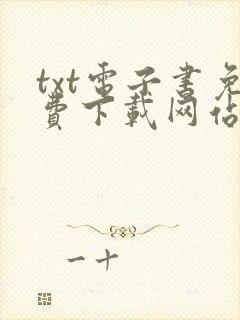 txt电子書免
費下載网佔
一十